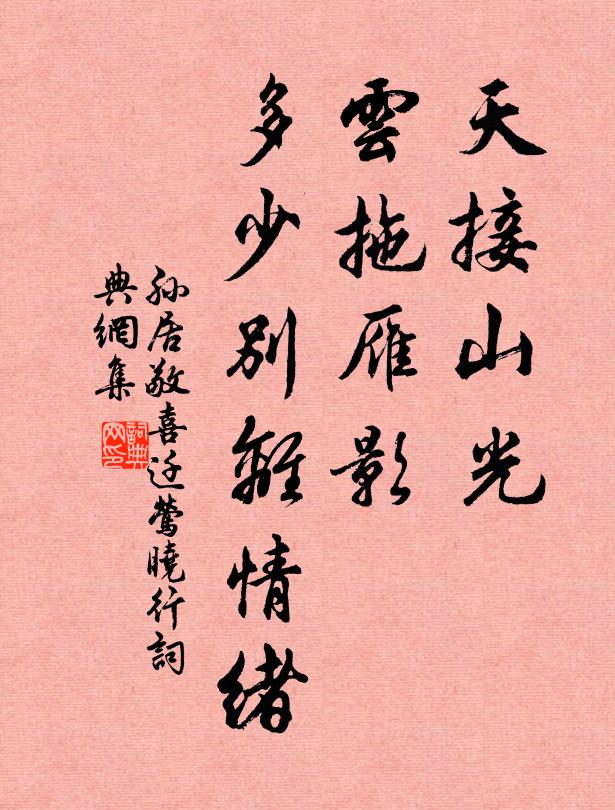 天接山光
雲拖雁影
多少別離情緒
孙居敬喜迁鶯曉行詞
典網集
詞典
网印